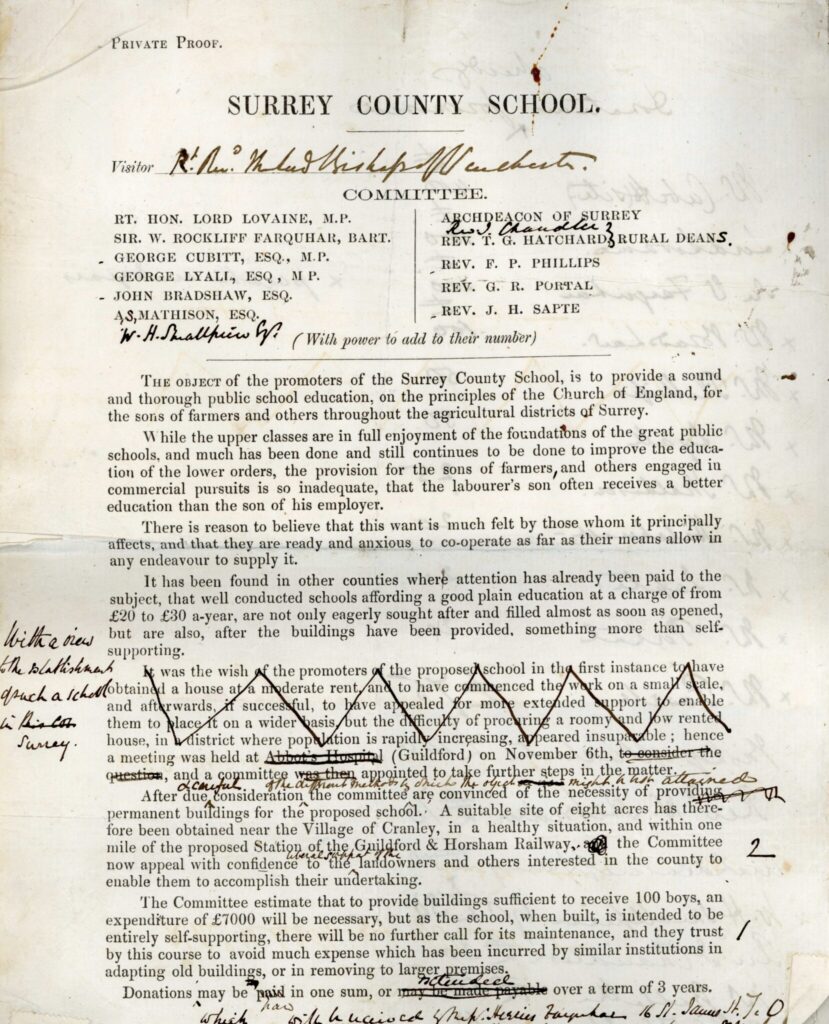 PRIVATE PROOF.
SURREY COUNTY SCHOOL.
Visitor Rt. Revd. the Lord Bishop of Winchester.
COMMITTEE.
RT. HON. LORD LOVAINE, M.P.
SIR. W. ROCKLIFF FARQUHAR, BART.
GEORGE CUBITT, ESQ., M.P.
GEORGE LYALL, ESQ, M P.
JOHN BRADSHAW, ESQ.
A,S, MATHISON, ESQ.
W. H. Smallpiece Esq.
ARCHDEACON OF SURREY
Rev J. Chandler
REV. T. G. HATCHARD, RURAL DEANS.
REV. F. P. PHILLIPS
REV. G. R. PORTAL
REV. J. H. SAPTE
(With power to add to their number)
THE OBJECT of the promoters of the Surrey County School, is to provide a sound
and thorough public school education, on the principles of the Church of England, for
the sons of farmers and others throughout the agricultural districts of Surrey.
While the upper classes are in full enjoyment of the foundations of the great public
schools, and much has been done and still continues to be done to improve the educa-
tion of the lower orders, the provision for the sons of farmers, and others engaged in
commercial pursuits is so inadequate, that the labourer's son often receives a better
education than the son of his employer.
There is reason to believe that this want is much felt by those whom it principally
affects, and that they are ready and anxious to co-operate as far as their means allow in
any endeavour to supply it.
It has been found in other counties where attention has already been paid to the
subject, that well conducted schools affording a good plain education at a charge of from
£20 to £30 a-year, are not only eagerly sought after and filled almost as soon as opened,
but are also, after the buildings have been provided, something more than self-
supporting.
With a view
to the establishment
of such a school
in this co
Surrey.
It was the wish of the promoters of the proposed school in the first instance to have
obtained a house at a moderate rent, and to have commenced the work on a small scale,
and afterwards, if successful, to have appealed for more extended support to enable
them to place it on a wider basis, but the difficulty of procuring a roomy and low rented
house, in a district where population is rapidly increasing, appeared insuparable; hence
a meeting was held at Abbot's Hospital (Guildford) on November 6th, to consider the
question, and a committee was then appointed to take further steps in the matter.
& careful of the different methods by which the object might be best attained
After due consideration the committee are convinced of the necessity of providing
permanent buildings for the proposed school. A suitable site of eight acres has there-
fore been obtained near the Village of Cranley, in a healthy situation, and within one
mile of the proposed Station of the Guildford & Horsham Railway, the Committee
2
liberal support of the
now appeal with confidence to the landowners and others interested in the county to
enable them to accomplish their undertaking.
The Committee estimate that to provide buildings sufficient to receive 100 boys, an
expenditure of £7000 will be necessary, but as the school, when built, is intended to be
1
entirely self-supporting, there will be no further call for its maintenance, and they trust
by this course to avoid much expense which has been incurred by similar institutions in
adapting old buildings, or in removing to larger premises.
extended
Donations may be paid in one sum, or may be made payable over a term of 3 years.
which will be received by Messrs Herries Farquhar 16 St. James St.